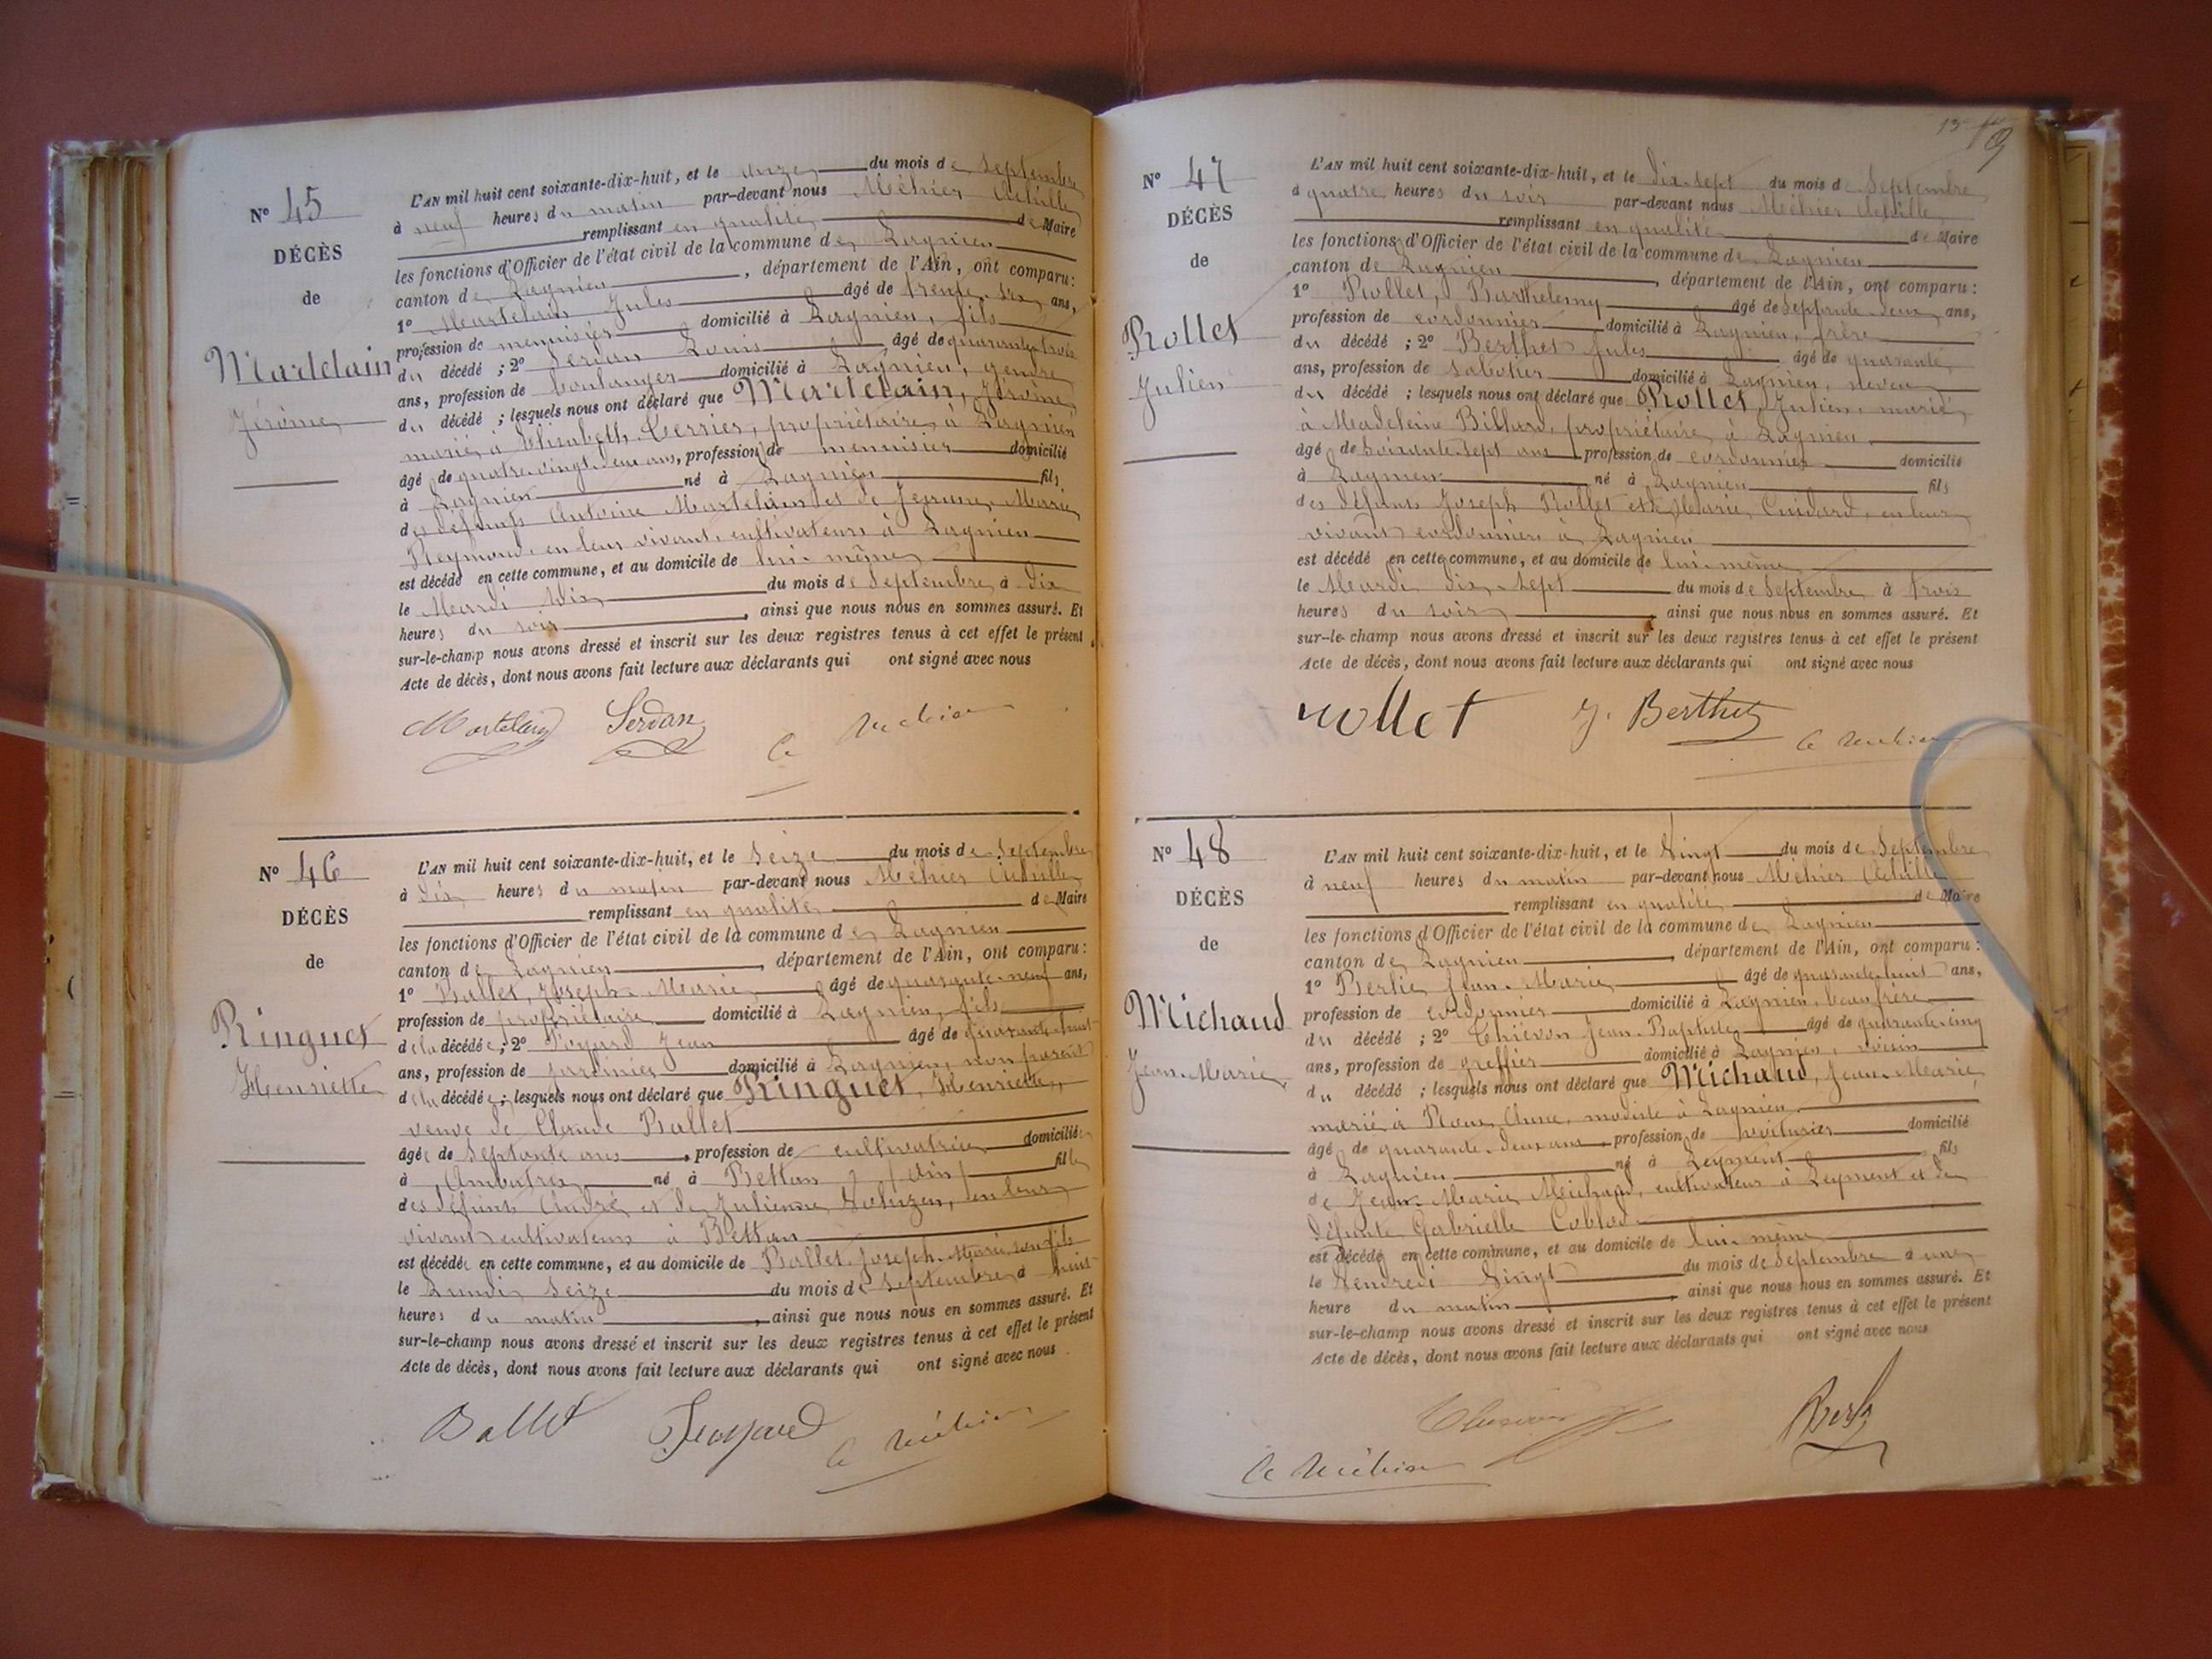 N° 45
DÉCÈS
de
Martelain
Jérôme
L'AN mil huit cent soixante-dix-huit, et le onze du mois de Septembre
à neuf heures du matin par-devant nous Méhier Achille
remplissant en qualité de Maire
les fonctions d'Officier de l'état civil de la commune de Lagnieu
canton de Lagnieu, département de l'Ain, ont comparu :
1° Martelain Jules âgé de trente-six ans,
profession de menuisier domicilié à Lagnieu, fils
du décédé ; 2° Serdan Louis âgé de quarante-trois
ans, profession de boulanger domicilié à Lagnieu, gendre
du décédé ; lesquels nous ont déclaré que Martelain, Jérôme,
marié à Elisabeth, propriétaire à Lagnieu
âgé de quatre-vingt-deux ans, profession de menuisier domicilié
à Lagnieu né à Lagnieu fils
des défunts Antoine Martelain et de Jeanne Marie
Reymond, en leur vivant, cultivateurs à Lagnieu
est décédé en cette commune, et au domicile de lui-même
le Mardi dix du mois de Septembre à dix
heures du soir, ainsi que nous nous en sommes assuré. Et
sur-le-champ nous avons dressé et inscrit sur les deux registres tenus à cet effet le présent
Acte de décès, dont nous avons fait lecture aux déclarants qui ont signé avec nous
Martelain Serdan A Méhier
N° 46
DÉCÈS
de
Ringuet
Henriette
L'AN mil huit cent soixante-dix-huit, et le Seize du mois de Septembre
à dix heures du matin par-devant nous Méhier Achille
remplissant en qualité de Maire
les fonctions d'Officier de l'état civil de la commune de Lagnieu
canton de Lagnieu, département de l'Ain, ont comparu :
1° Ballet, Joseph-Marie âgé de quarante-neuf ans,
profession de propriétaire domicilié à Lagnieu, fils
de la décédée ; 2° Jean âgé de quarante-huit
ans, profession de jardinier domicilié à Lagnieu, non parent
de la décédée ; lesquels nous ont déclaré que Ringuet, Henriette,
veuve de Claude Ballet
âgée de Septante ans, profession de cultivatrice domiciliée
à Ambutrix née à Bettan (Ain) fille
des défunts André et de Julienne, en leur
vivant cultivateurs à Bettan
est décédée en cette commune, et au domicile de Ballet Joseph-Marie, son fils
le Lundi Seize du mois de Septembre à huit
heures du matin, ainsi que nous nous en sommes assuré. Et
sur-le-champ nous avons dressé et inscrit sur les deux registres tenus à cet effet le présent
Acte de décès, dont nous avons fait lecture aux déclarants qui ont signé avec nous
Ballet A Méhier
N° 47
DÉCÈS
de
Rollet
Julien
L'AN mil huit cent soixante-dix-huit, et le dix-sept du mois de Septembre
à quatre heures du soir par-devant nous Méhier Achille
remplissant en qualité de Maire
les fonctions d'Officier de l'état civil de la commune de Lagnieu
canton de Lagnieu, département de l'Ain, ont comparu :
1° Rollet, Barthelemy âgé de Septante-deux ans,
profession de cordonnier domicilié à Lagnieu, frère
du décédé ; 2° Berthet Jules âgé de quarante
ans, profession de sabotier domicilié à Lagnieu, neveu
du décédé ; lesquels nous ont déclaré que Rollet, Julien, marié
à Madeleine Billard, propriétaire à Lagnieu
âgé de Soixante-sept ans profession de cordonnier domicilié
à Lagnieu né à Lagnieu fils
des défunts Joseph Rollet et de Marie Cuidard, en leur
vivant cordonniers à Lagnieu
est décédé en cette commune, et au domicile de lui-même
le Mardi dix-sept du mois de Septembre à trois
heures du soir, ainsi que nous nous en sommes assuré. Et
sur-le-champ nous avons dressé et inscrit sur les deux registres tenus à cet effet le présent
Acte de décès, dont nous avons fait lecture aux déclarants qui ont signé avec nous
rollet J. Berthet A Méhier
N° 48
DÉCÈS
de
Michaud
Jean-Marie
L'AN mil huit cent soixante-dix-huit, et le Vingt du mois de Septembre
à neuf heures du matin par-devant nous Méhier Achille
remplissant en qualité de Maire
les fonctions d'Officier de l'état civil de la commune de Lagnieu
canton de Lagnieu, département de l'Ain, ont comparu :
1° Berlie Jean-Marie âgé de quarante-huit ans,
profession de cordonnier domicilié à Lagnieu, beau frère
du décédé ; 2° Thiévon Jean-Baptiste âgé de quarante-cinq
ans, profession de greffier domicilié à Lagnieu, voisin
du décédé ; lesquels nous ont déclaré que Michaud, Jean-Marie
marié à Roux, modiste à Lagnieu
âgé de quarante-deux ans profession de voiturier domicilié
à Lagnieu né à Leyment fils
de Jean-Marie Michaud, cultivateur à Leyment et de
défunte Gabrielle
est décédé en cette commune, et au domicile de lui-même
le Vendredi Vingt du mois de Septembre à une
heure du matin, ainsi que nous nous en sommes assuré. Et
sur-le-champ nous avons dressé et inscrit sur les deux registres tenus à cet effet le présent
Acte de décès, dont nous avons fait lecture aux déclarants qui ont signé avec nous
A Méhier